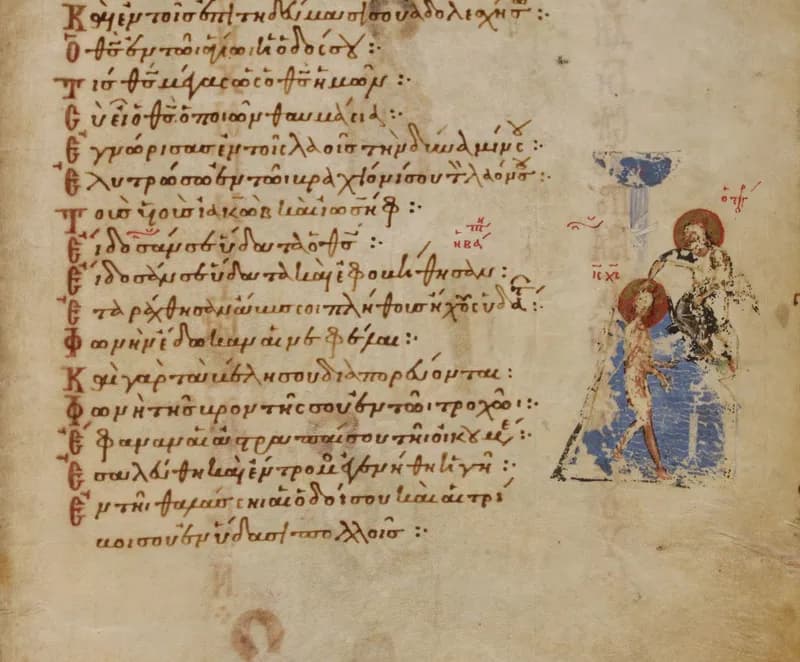 Καὶ ἐν τοῖς ἐπιτηδεύμασί σου ἀδολεσχήσω :·
Ὁ θ̅ς̅ ἐν τῶι ἁγίωι ἡ ὁδός σου :·
Τίς θ̅ς̅ μέγας ὡς ὁ θ̅ς̅ ἡμῶν :·
Σὺ εἶ ὁ θ̅ς̅ ὁ ποιῶν θαυμάσια :·
Ἐγνώρισας ἐν τοῖς λαοῖς τὴν δύναμίν σου :·
Ἐλυτρώσω ἐν τῶι βραχίονί σου τὸν λαόν σου :·
Τοὺς υἱοὺς ἰακὼβ καὶ ἰωσήφ :·
Εἴδοσάν σε ὕδατα ὁ θ̅ς̅ :·
Εἴδοσάν σε ὕδατα καὶ ἐφοβήθησαν :
Ἐταράχθησαν ἄβυσσοι πλήθους ἤχους ὑδάτ :·
Φωνὴν ἔδωκαν αἱ νεφέλαι :·
Καὶ γὰρ τὰ βέλη σου διαπορεύονται :
Φωνὴ τῆς βροντῆς σου ἐν τῶι τροχῶι :·
Ἔφαναν αἱ ἀστραπαί σου τῆι οἰκουμέ :·
Ἐσαλεύθη καὶ ἔντρομος ἐγενήθη ἡ γῆ :·
Ἐν τῆι θαλάσσηι αἱ ὁδοί σου καὶ αἱ τρί
βοι σου ἐν ὕδασι πολλοῖς :·
ἡ βάπτη
ὁ πρ
ι̅ς̅ χ̅ς̅